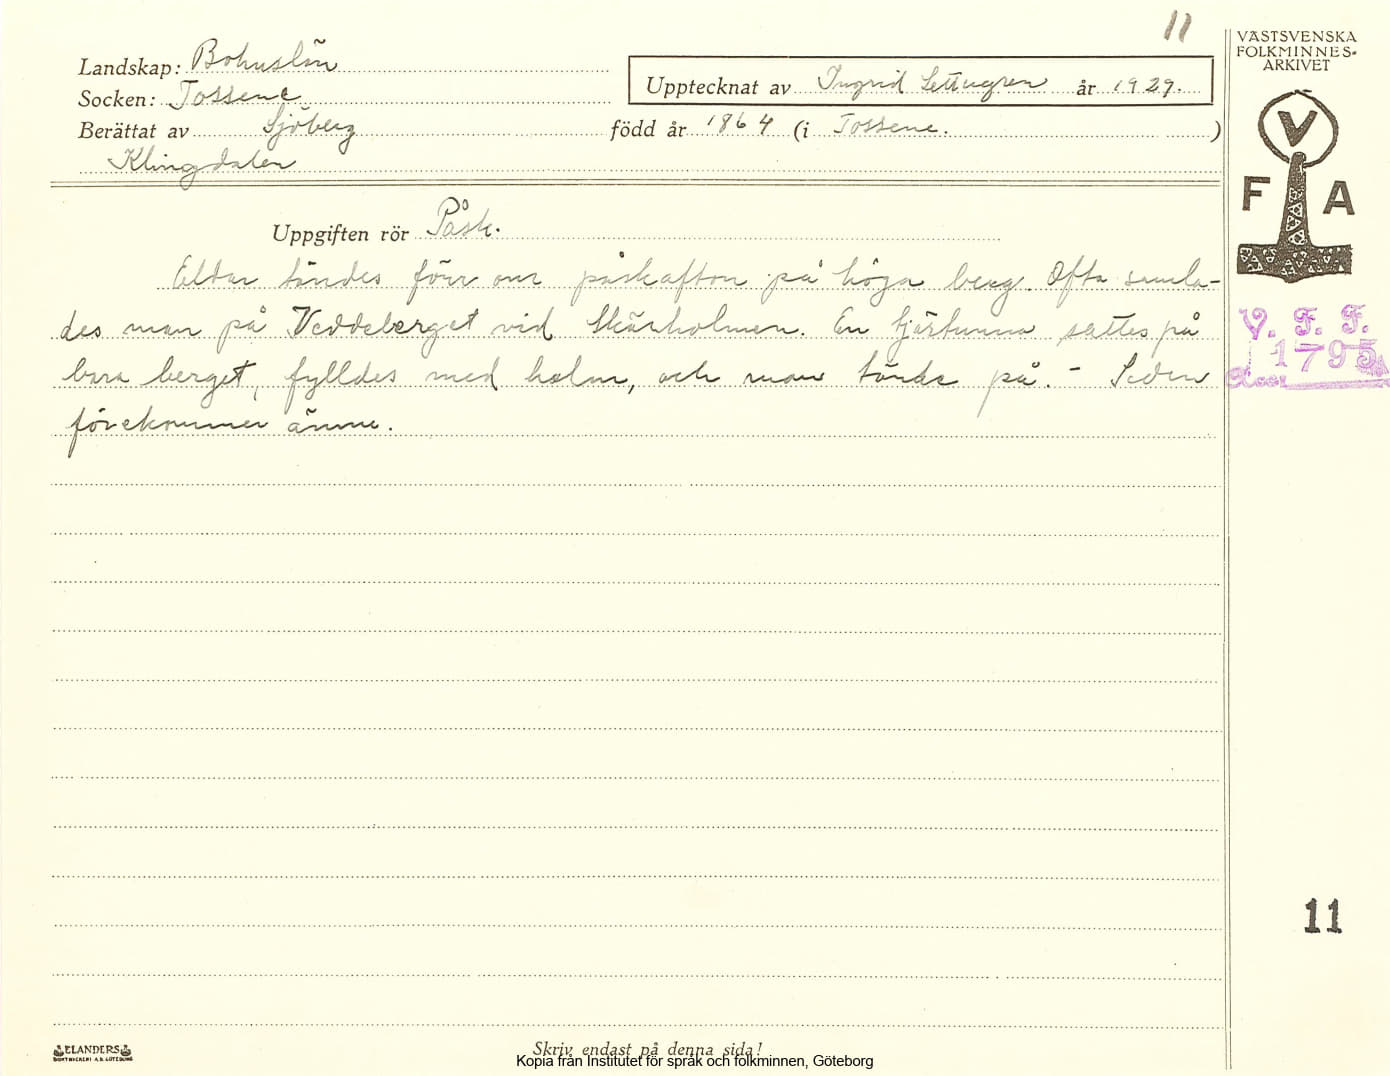 11
Landskap: Bohuslän
Socken: Tossene
Upptecknat av Ingrid år 1929.
Berättat av Sjöberg född år 1864 (i Tossene. )
Klingdalen
Uppgiften rör Påsk.
Eldar tändes förr om påskafton på höga berg. Ofta samla-
des man på Veddeberget vid Skärholmen. En tjärtunna sattes på
bara berget, fylldes med halm, och man tände på. - Seden
förekommer ännu.
VÄSTSVENSKA
FOLKMINNES-
ARKIVET
V
F A
V. F. F.
1795
11
ELANDERS
BOKTRYCKERI A.B. GÖTEBORG
Skriv endast på denna sida!
Kopia från Institutet för språk och folkminnen, Göteborg